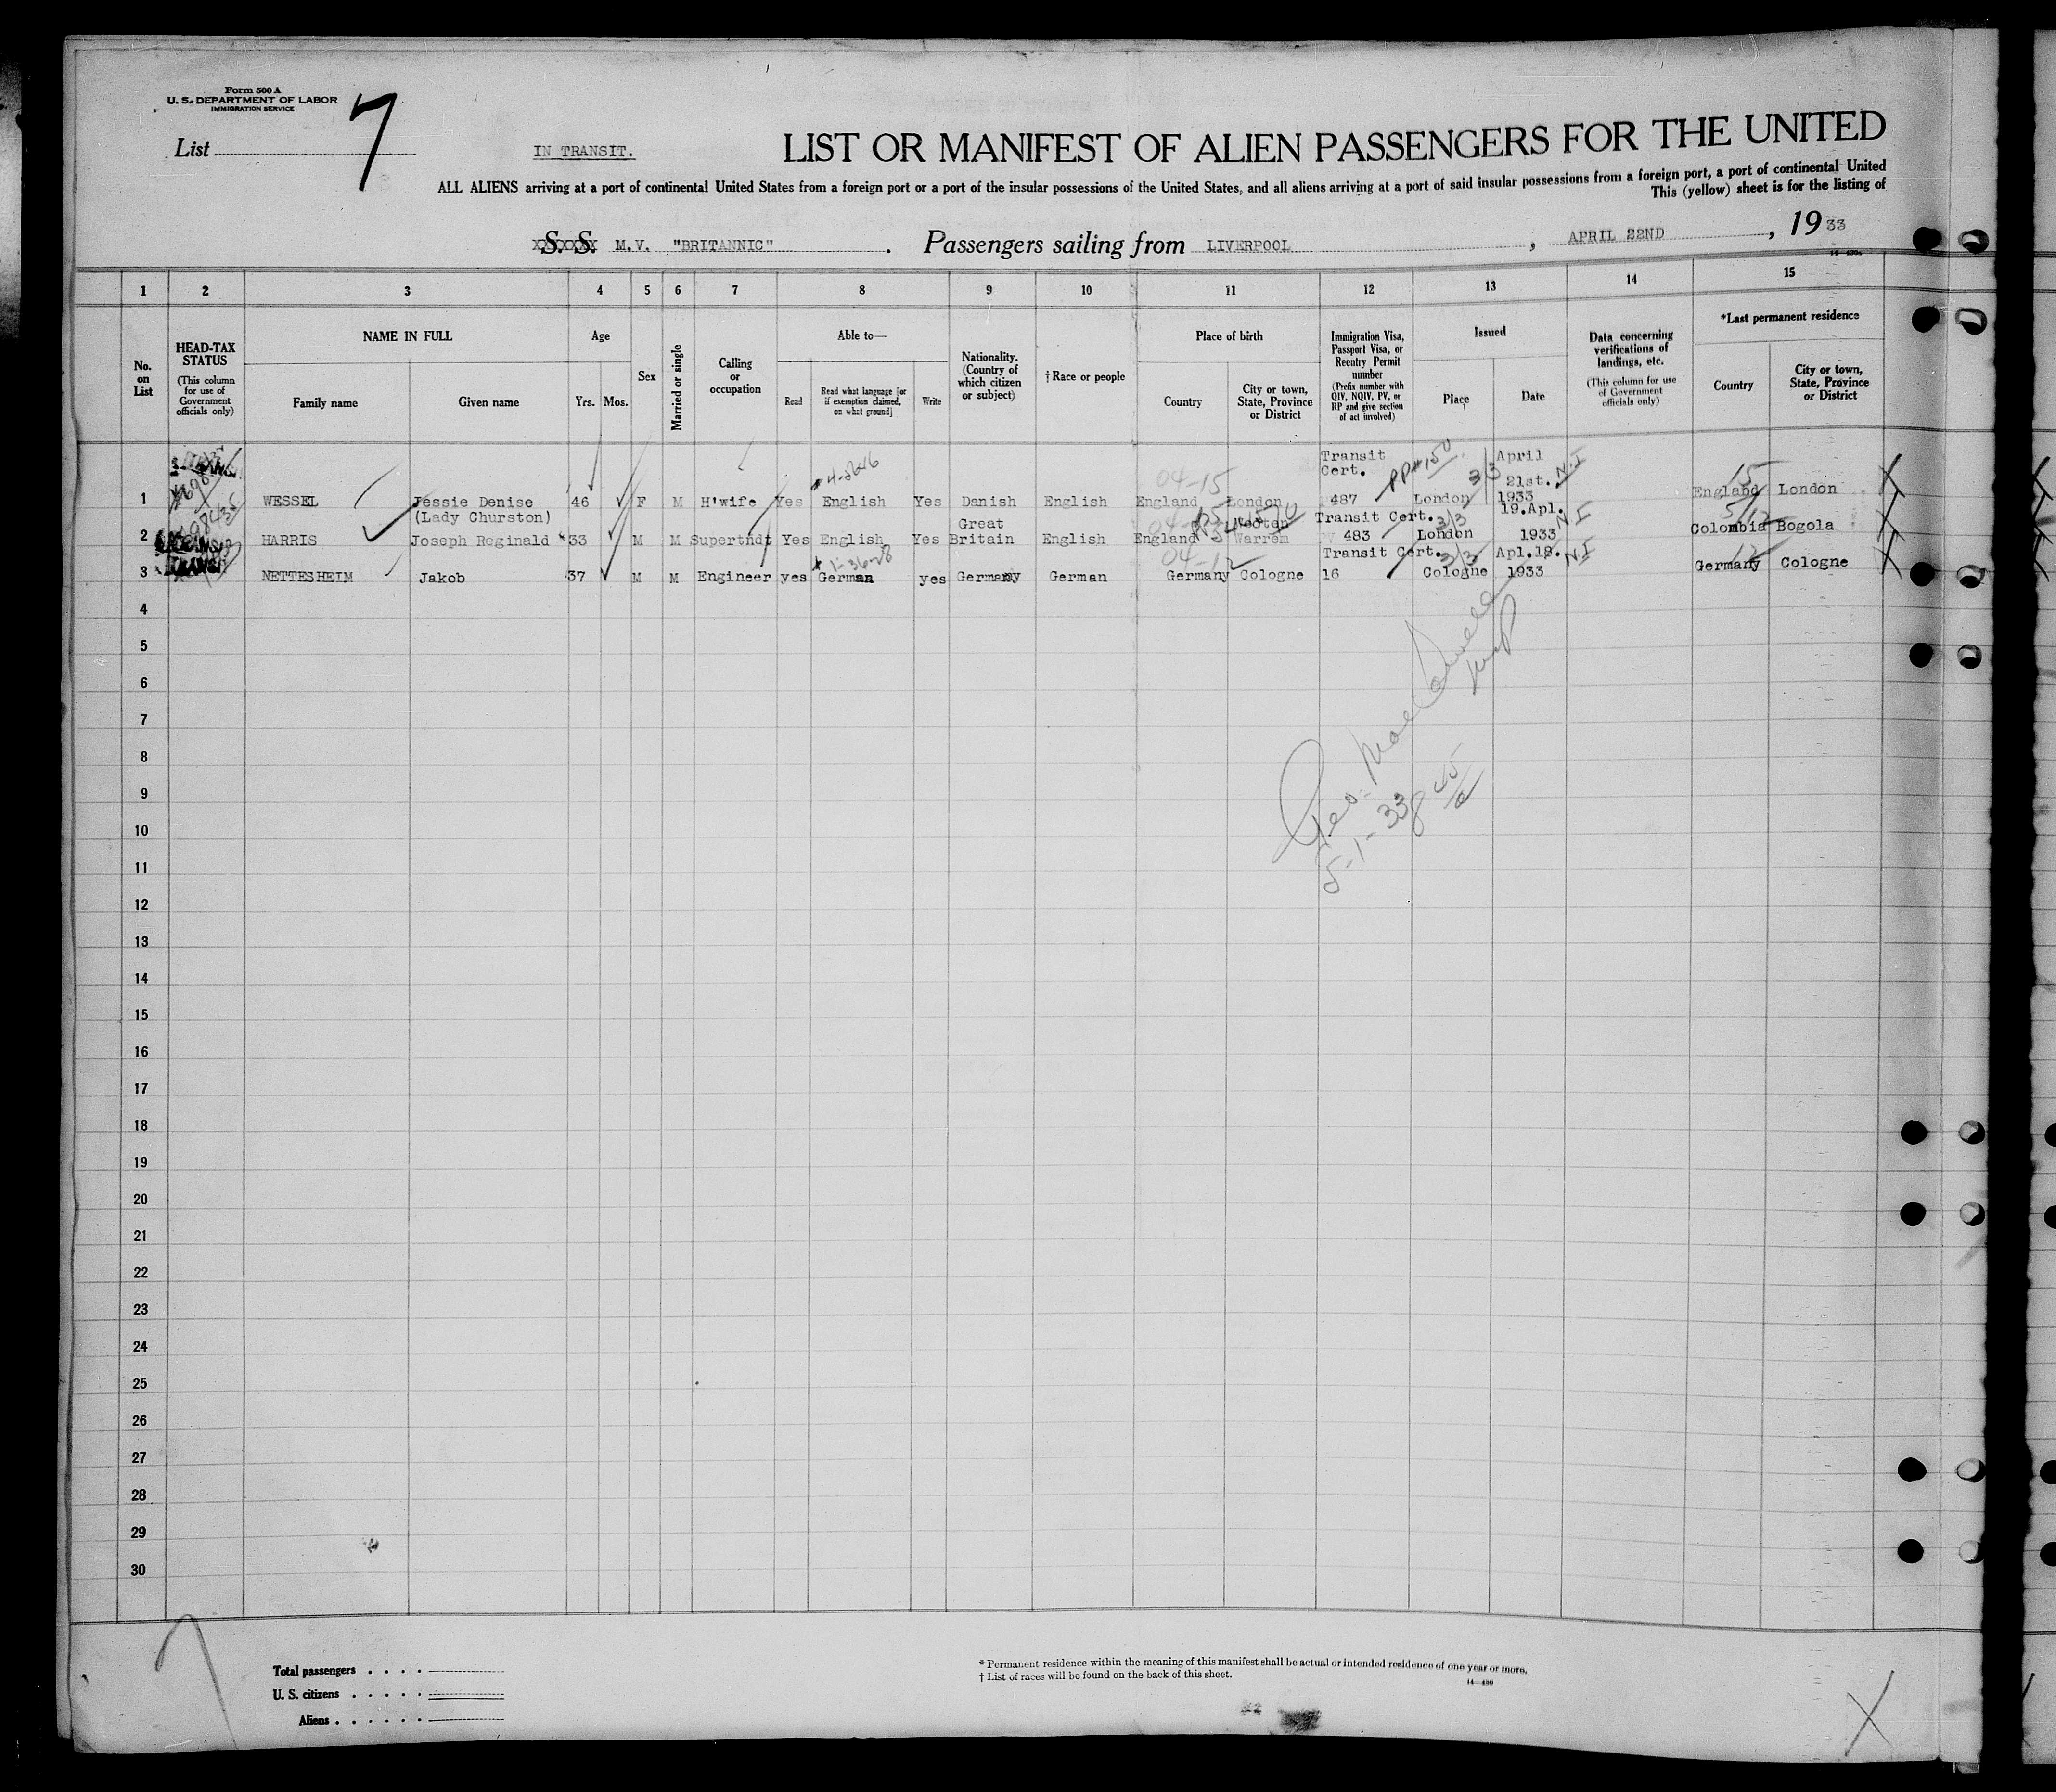 Form 500 A
U. S. DEPARTMENT OF LABOR
IMMIGRATION SERVICE
List 7
IN TRANSIT.
LIST OR MANIFEST OF ALIEN PASSENGERS FOR THE UNITED
ALL ALIENS arriving at a port of continental United States from a foreign port or a port of the insular possessions of the United States, and all aliens arriving at a port of said insular possessions from a foreign port, a port of continental United
This (yellow) sheet is for the listing of
S. S. M.V. "BRITANNIC" . Passengers sailing from LIVERPOOL , APRIL 22ND , 1933
1 2 3 4 5 6 7 8 9 10 11 12 13 14 15
No. on List
HEAD-TAX STATUS
(This column for use of Government officials only)
NAME IN FULL
Family name Given name
Age
Yrs. Mos.
Sex
Married or single
Calling or occupation
Able to—
Read Read what language [or if exemption claimed, on what ground] Write
Nationality. (Country of which citizen or subject)
†Race or people
Place of birth
Country City or town, State, Province or District
Immigration Visa, Passport Visa, or Reentry Permit number
(Prefix number with QIV, NQIV, PV, or RP and give section of act involved)
Issued
Place Date
Data concerning verifications of landings, etc.
(This column for use of Government officials only)
*Last permanent residence
Country City or town, State, Province or District
Transit Cert. PP#150 3/3 April 21st. N.I
1 WESSEL Jessie Denise 46 F M H'wife Yes English Yes Danish English England London 487 London 1933 England London
(Lady Churston) Great Transit Cert. 3/3 19.Apl. N.I
2 HARRIS Joseph Reginald 33 M M Suptertndt Yes English Yes Britain English England Warren 483 London 1933 Colombia Bogola
04-12 Transit Cert. 3/3 Apl.19. N.I
3 NETTESHEIM Jakob 37 M M Engineer yes German yes Germany German Germany Cologne 16 Cologne 1933 Germany Cologne
4
5
6
7
8
9
10
11
12
13
14
15
16
17
18
19
20
21
22
23
24
25
26
27
28
29
30
5-1-33
7
Total passengers . . . .
U. S. citizens . . . . .
Aliens . . . . . .
* Permanent residence within the meaning of this manifest shall be actual or intended residence of one year or more.
† List of races will be found on the back of this sheet.
14—430